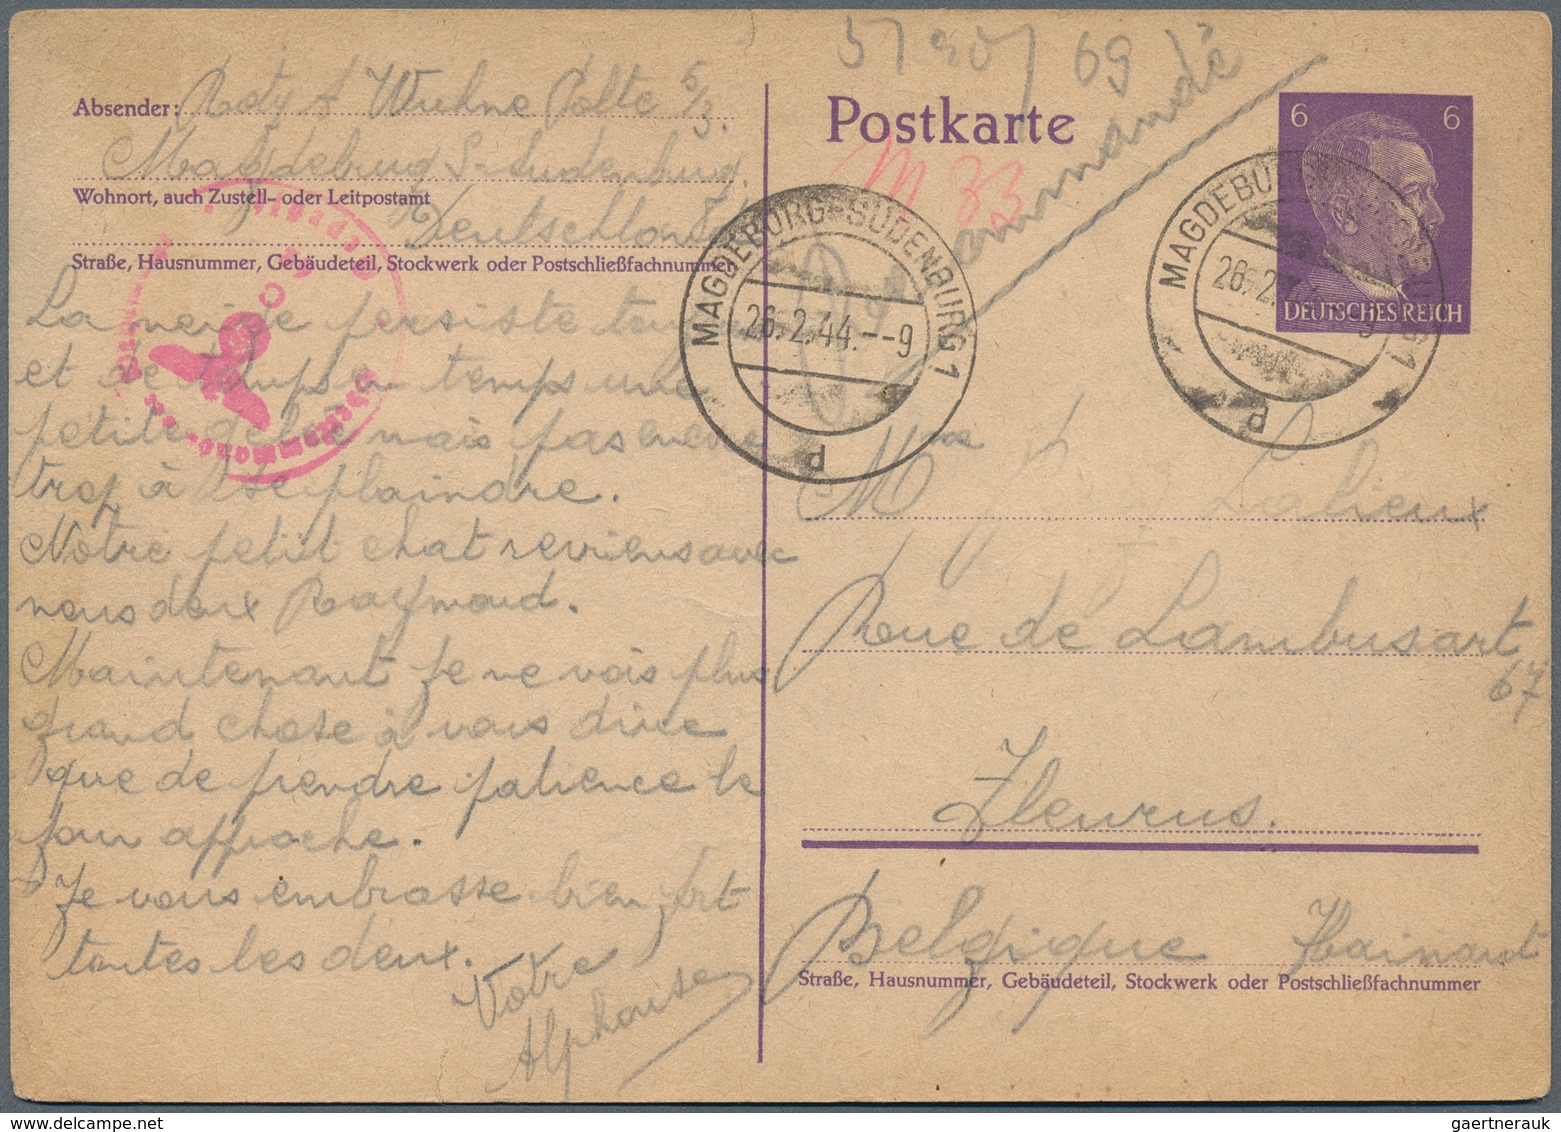 Absender: Rety A Wuhne Polte 5/3.
Magdeburg S-Sudenburg.
Wohnort, auch Zustell- oder Leitpostamt
Deutschland
Straße, Hausnummer, Gebäudeteil, Stockwerk oder Postschließfachnummer
La neige persiste
et de temps en temps une
petite gelée mais pas encore
trop à se plaindre.
Notre petit chat reviens avec
nous deux Raymond.
Maintenant je ne vois plus
grand chose à vous dire
que de prendre patience le
jour approche.
Je vous embrasse bien fort
toutes les deux.
Votre
Alphonse
69
Postkarte
M 33
6 6
DEUTSCHES REICH
MAGDEBURG-SUDENBURG 1
26.2.44.--9
d
MAGDEBURG-SUDENBURG 1
26.2.44.--9
d
Mme Lalieux
Rue de Lambusart
67
Fleurus.
Belgique Hainaut
Straße, Hausnummer, Gebäudeteil, Stockwerk oder Postschließfachnummer
gaertnerauk